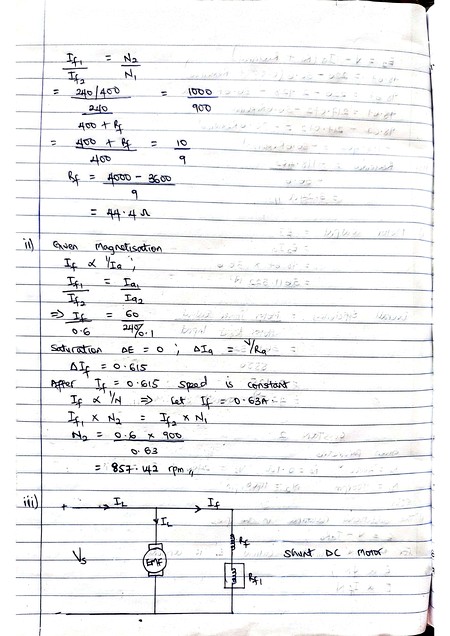 If1 = N2
If2 N1
= 240/400 = 1000
240 900
400 + Rf
= 400 + Rf = 10
400 9
Rf = 4000 - 3600
9
= 44.4 Ω
ii) Given Magnetisation
If ∝ 1/Ia ;
If1 = Ia1
If2 Ia2
⇒ If = 60
0.6 240/0.1
Saturation ΔE = 0 ; ΔIa = V/Ra
ΔIf = 0.615
After If = 0.615 speed is constant
If ∝ 1/N ⇒ Let If = 0.63A
If1 x N2 = If2 x N1
N2 = 0.6 x 900
0.63
= 857.142 rpm,,
iii) + IL If
IL
Rf
Vs EMF Rf1 Shunt DC Motor
-